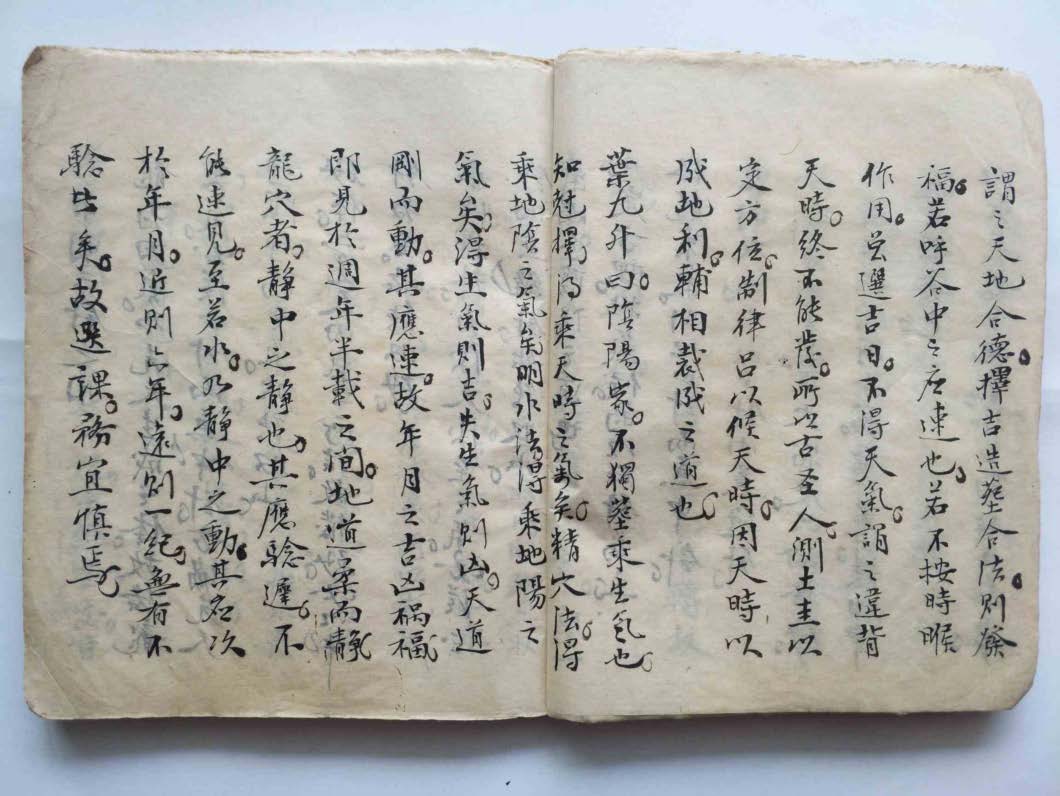 謂之天地合德。擇吉造塟合法。則發
福。若呼谷中之应速也。若不按時候
作用。妄選吉日。不得天氣。謂之違背
天時。終不能發。所以古圣人。測土圭以
定方位。制律吕以候天時。因天時以
成地利。輔相裁成之道也。
葉九升曰。陰陽家。不獨塟乘生气也。
知尅擇。乃乘天時之氣矣。精穴法。得
乘地陰之氣矣。明水法。得乘地陽之
氣矣。得生氣則吉。失生氣則凶。天道
剛而動。其應速。故年月之吉凶祸福。
即見於週年半載之间。地道柔而静。
龍穴者。静中之静也。其應驗遲。不
能速見。至若水。乃静中之動。其应次
於年月。近则六年。遠则一紀。無有不
驗也矣。故選課。務宜慎焉。